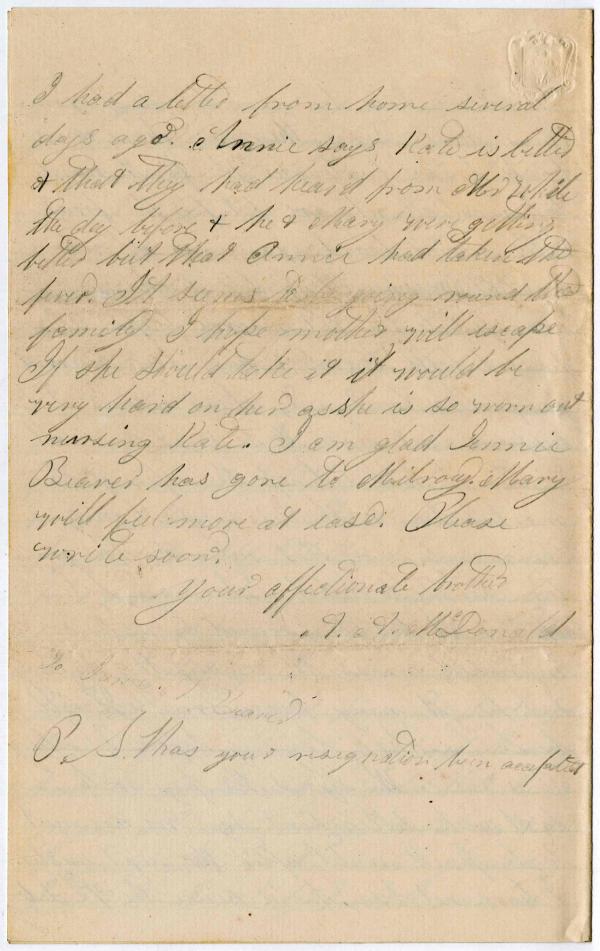 I had a letter from home several
days ago. Annie says Kate is better
& that they had heard from Mr
the day before & he & Mary were getting
better but that Annie had taken the
fever. It seems to be going round the
family. I hope mother will escape
If she should take it it would be
very hard on her as she is so worn out
nursing Kate. I am glad Jennie
Beaver has gone to Milroy. Mary
will feel more at ease. Please
write soon.
Your affectionate brother
A. A. McDonald
To Beaver
P. S. Has your resignation been accepted